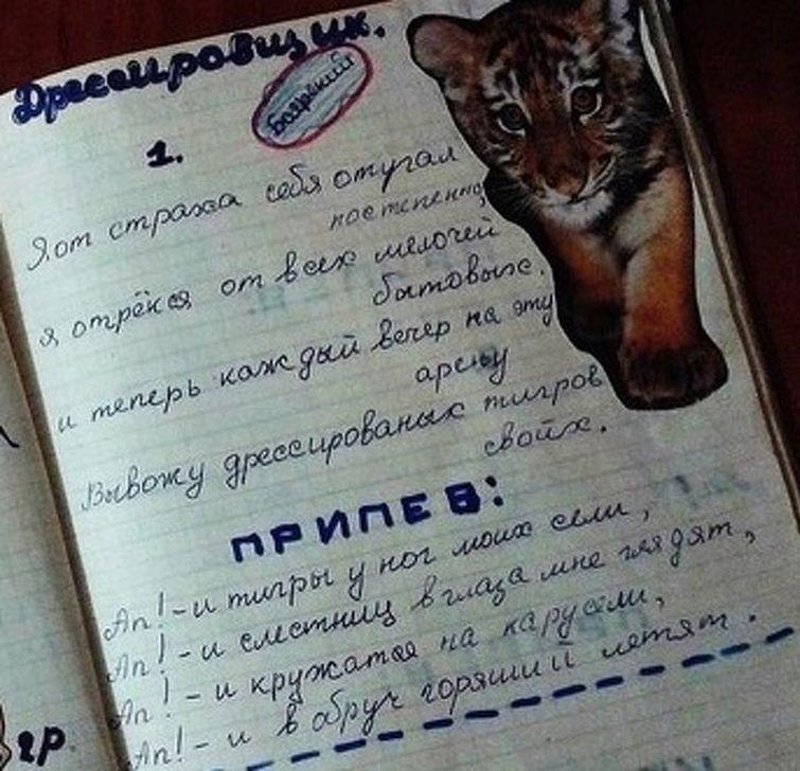 Дрессировщик.
Боярский
1.
Я от страха себя отугал
постепенно,
я отрёкся от всех мелочей
бытовых.
и теперь каждый вечер на эту
арену
Вывожу дрессированых тигров
свойх.
ПРИПЕВ:
Ап! - и тигры у ног моих сели,
Ап! - и слестниц в глаза мне глядят,
Ап! - и кружатся на карусели,
Ап! - и в обруч горящий летят.
гр.